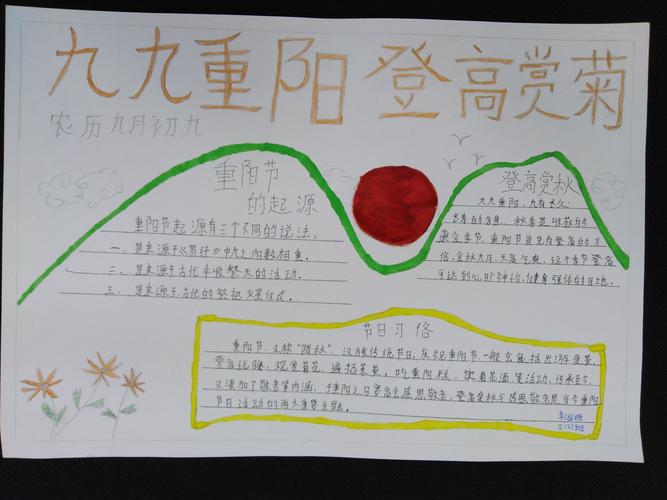 九九重阳 登高赏菊
农历九月初九
重阳节
的起源
重阳节起源有三个不同的说法。
一、是来源于《易经》中九之阳数相重。
二、是来源于古代丰收祭天的活动。
三、是来源于古代的祭祖火星仪式。
登高赏秋
九九重阳，九有长久
长寿的含意，秋季是收获的
黄金季节，重阳节首先有登高的习
俗，金秋九月，天高气爽，这个季节登高
可达到心旷神怡，健身强体的目地。
节日习俗
重阳节，又称“踏秋”，汉族传统节日，庆祝重阳节一般会包括出游赏景、
登高远眺、观赏菊花、遍插茱萸、吃重阳糕、饮菊花酒等活动，传承至今，
又添加了敬老等内涵，于重阳之日享宴高会感恩敬老，登高赏秋与感恩敬老是当今重阳
节日活动的两大重要主题。